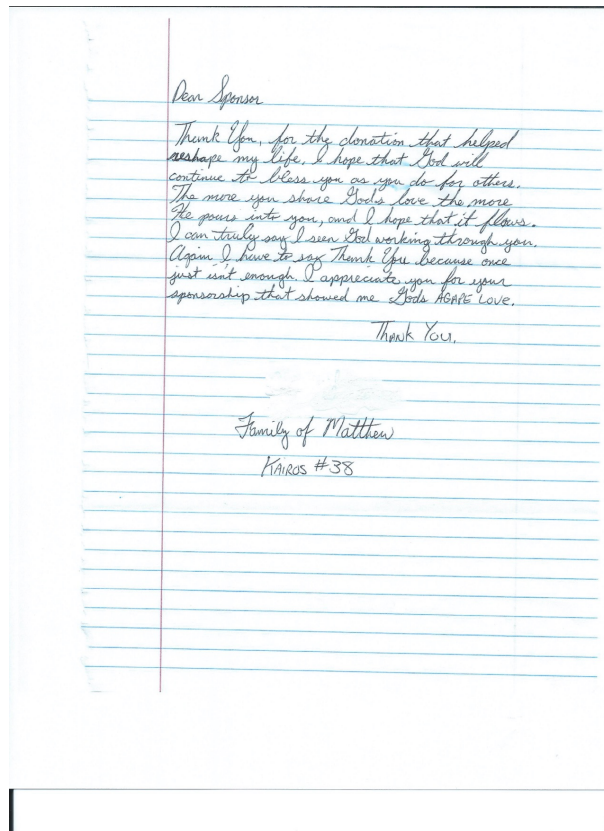 Dear Sponsor
Thank You, for the donation that helped
reshape my life. I hope that God will
continue to bless you as you do for others.
The more you share God's love the more
He pours into you, and I hope that it flows.
I can truly say I seen God working through you.
Again I have to say Thank You because once
just isn't enough. I appreciate you for your
sponsorship that showed me God's AGAPE LOVE.
THANK YOU.
Family of Matthew
KAIROS #38